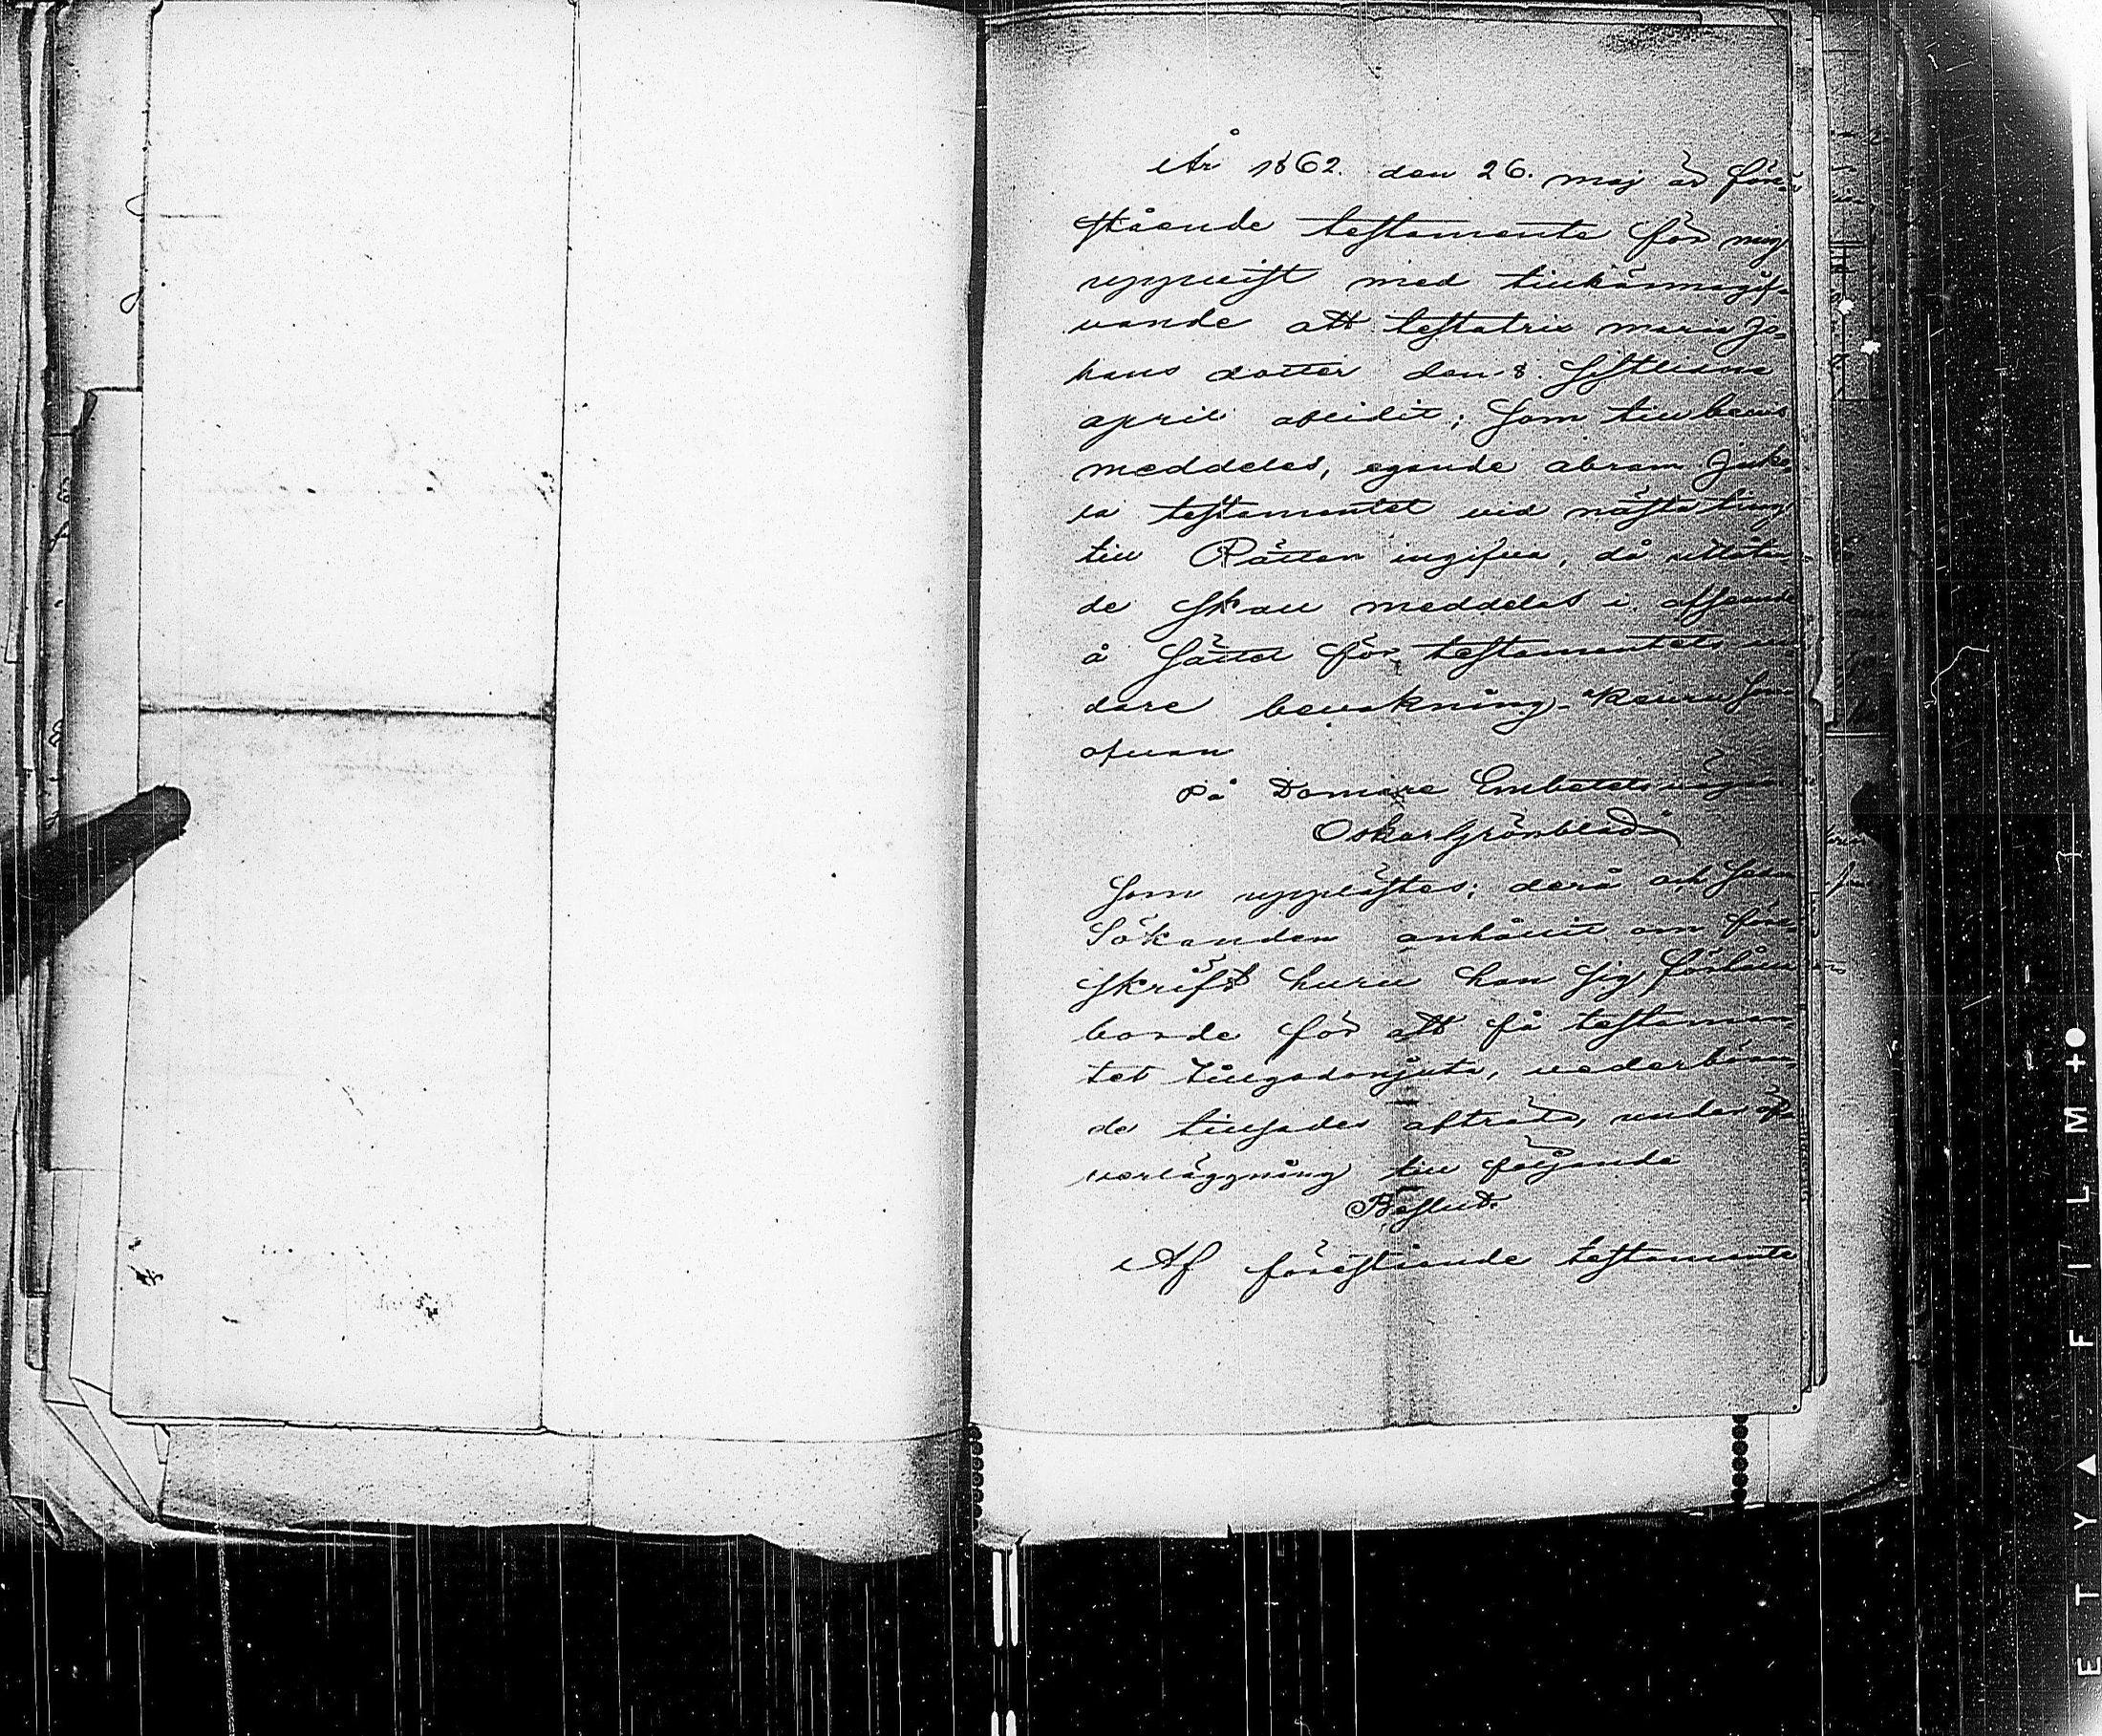 År 1862. den 26. maj är före
stående testamente för mig
uppvist med tillkännagif
vande att testatrix maria Jo=
hans dotter den 8. sistledne
april aflidit; som till bevis
meddelas, egande abram Juko
la testamentet vid nästa ting
till Rätten ingifva, då utlåtan
de skall meddelas i afseende
å sättet för testamentets vi
dare bevakning. Keuru som
ofvan
På Domare Embetets vägnar
Oskar Grönblad
Som upplästes; derå och sedan
Sökanden anhållit om före
skrift huru han sig förhålla
borde för att få testamen
tet tillgodonjuta, vederböran
de tillsades afträda, under öf
verläggning till följande
Beslut.
Af förestående testamente
FILM
ETY